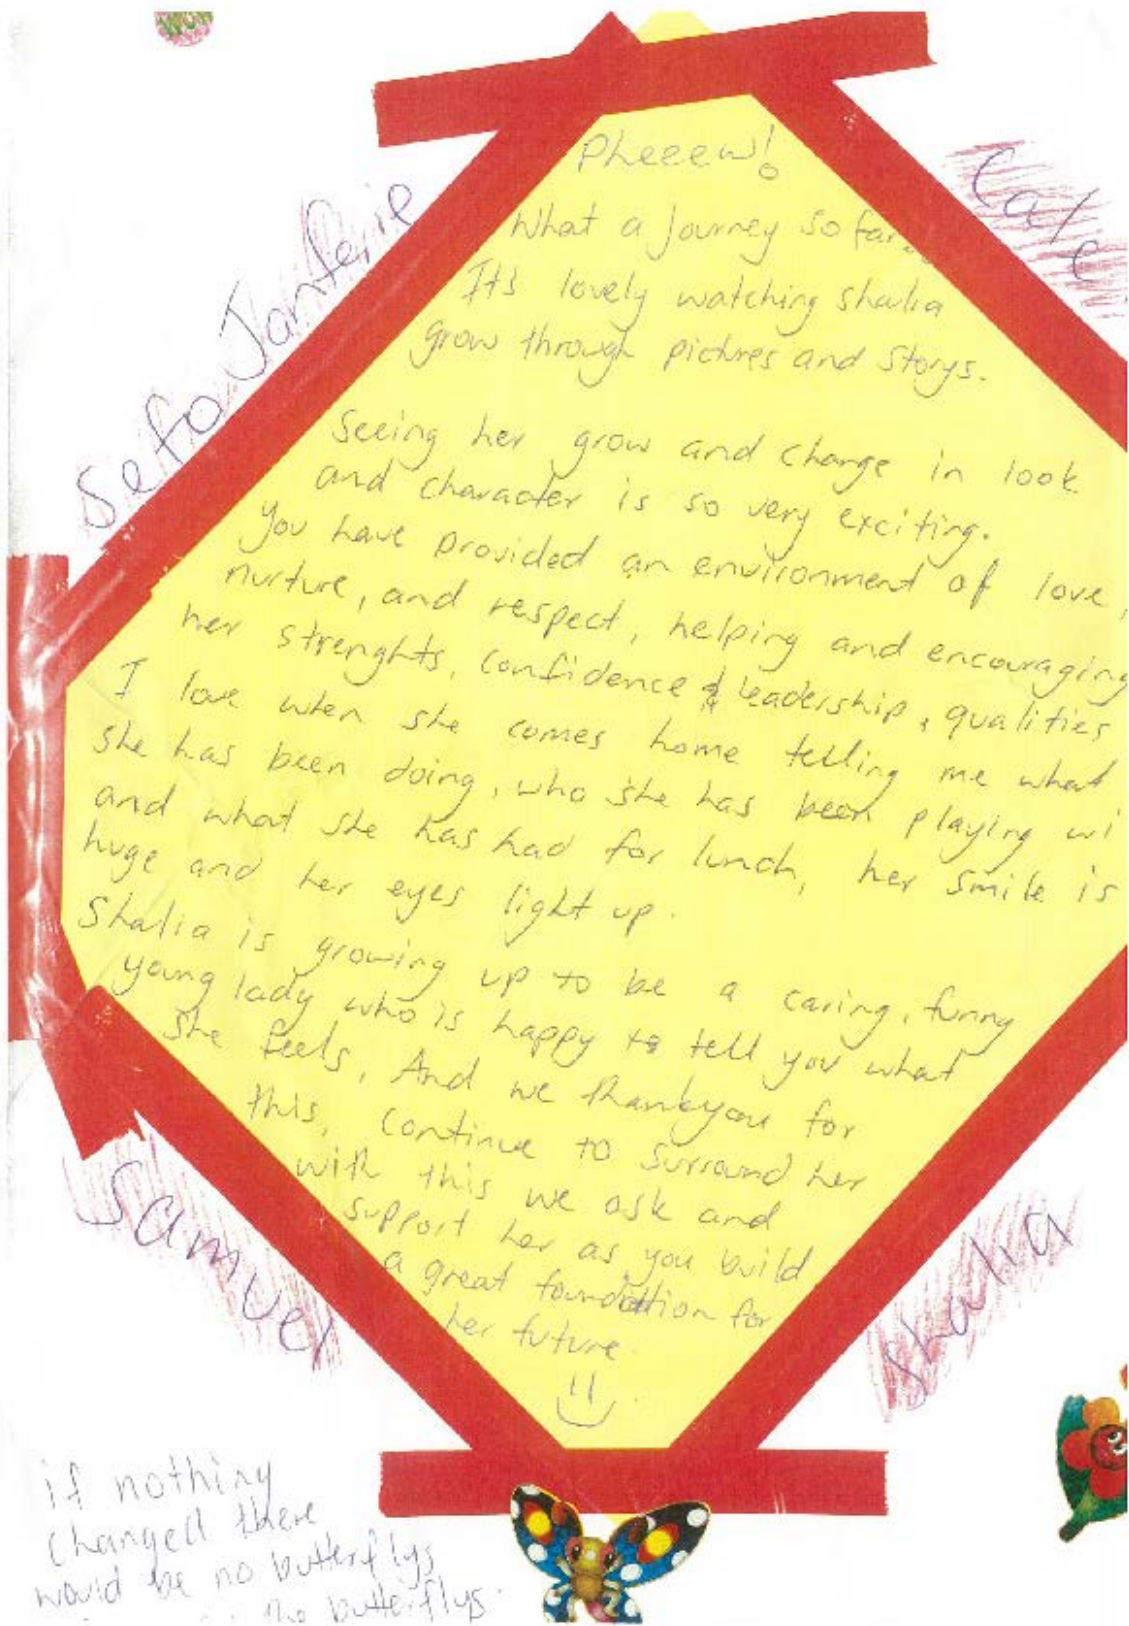 Pheeew!
What a journey so far..
It's lovely watching Shalia
grow through pictures and storys.
Seeing her grow and change in look
and character is so very exciting.
You have provided an environment of love,
nurture, and respect, helping and encouraging
her strenghts, confidence & leadership, qualities
I love when she comes home telling me what
she has been doing, who she has been playing wi
and what she has had for lunch, her smile is
huge and her eyes light up.
Shalia is growing up to be a caring, funny
young lady who is happy to tell you what
she feels, And we thankyou for
this, continue to surround her
with this we ask and
support her as you build
a great foundation for
her future.
Sefo Janferie
Cale
Samuel
Shalia
if nothing
changed there
would be no butterflys
the butterflys.